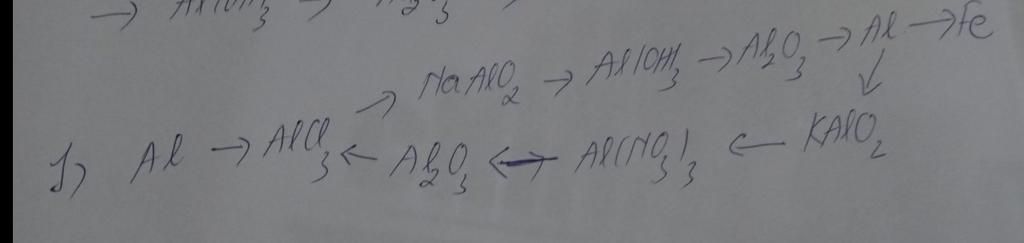 → Al(OH)₃ →
NaAlO₂ → Al(OH)₃ → Al₂O₃ → Al → Fe
1) Al → AlCl₃ ← Al₂O₃ ↔ Al(NO₃)₃ ← KAlO₂